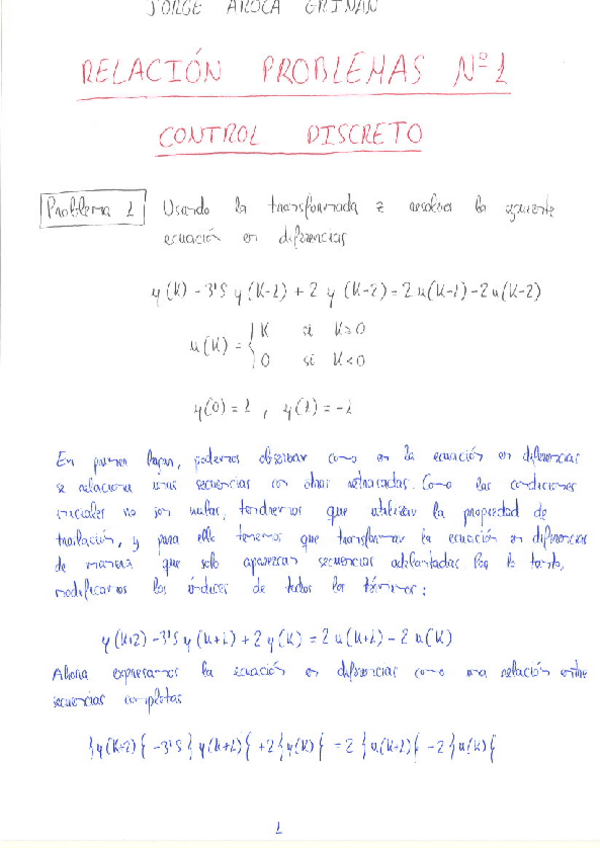 JORGE AROCA GRIÑÁN
RELACIÓN PROBLEMAS Nº1
CONTROL DISCRETO
Problema 1 Usando la transformada z resolver la siguiente
ecuación en diferencias
y(k) - 3'5 y(k-1) + 2 y(k-2) = 2u(k-1) - 2u(k-2)
u(k) = { k si k≥0
0 si k<0
y(0) = 1 , y(1) = -1
En primer lugar, podemos observar como en la ecuación en diferencias
se relaciona unas secuencias con otras retrasadas. Como las condiciones
iniciales no son nulas, tendremos que utilizar la propiedad de
traslación, y para ello tenemos que transformar la ecuación en diferencias
de manera que solo aparezcan secuencias adelantadas. Por lo tanto,
modificamos los índices de todos los términos:
y(k+2) - 3'5 y(k+1) + 2 y(k) = 2u(k+1) - 2u(k)
Ahora expresamos la ecuación en diferencias como una relación entre
secuencias completas
{y(k+2)} - 3'5 {y(k+1)} + 2{y(k)} = 2{u(k+1)} - 2{u(k)}
1